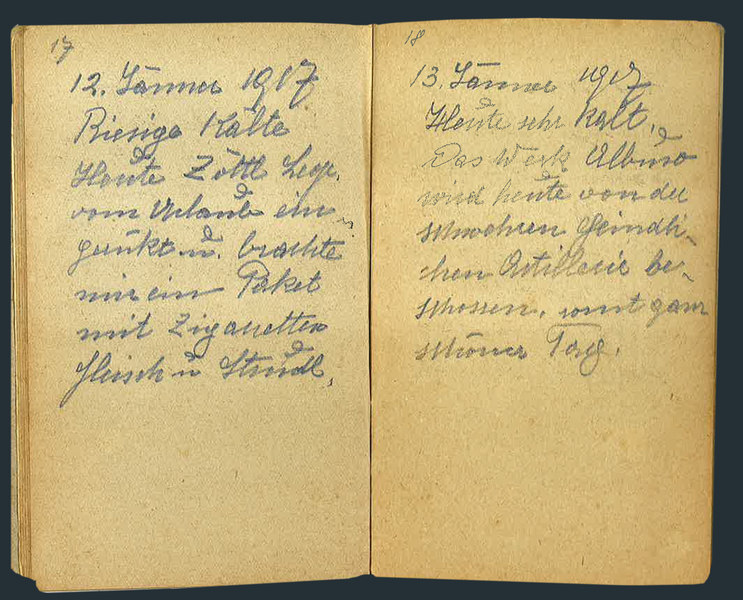 17
12. Jänner 1917
Riesige Kälte
Heute Zöttl Leop.
vom Urlaub ein-
gerückt u. brachte
mir ein Paket
mit Zigaretten
fleisch u Strudl,
18
13. Jänner 1917
Heute sehr kalt,
Das Werk
wird heute von der
schwohren feindli-
chen Artillerie be-
schossen, sonst ganz
schöner Tag.